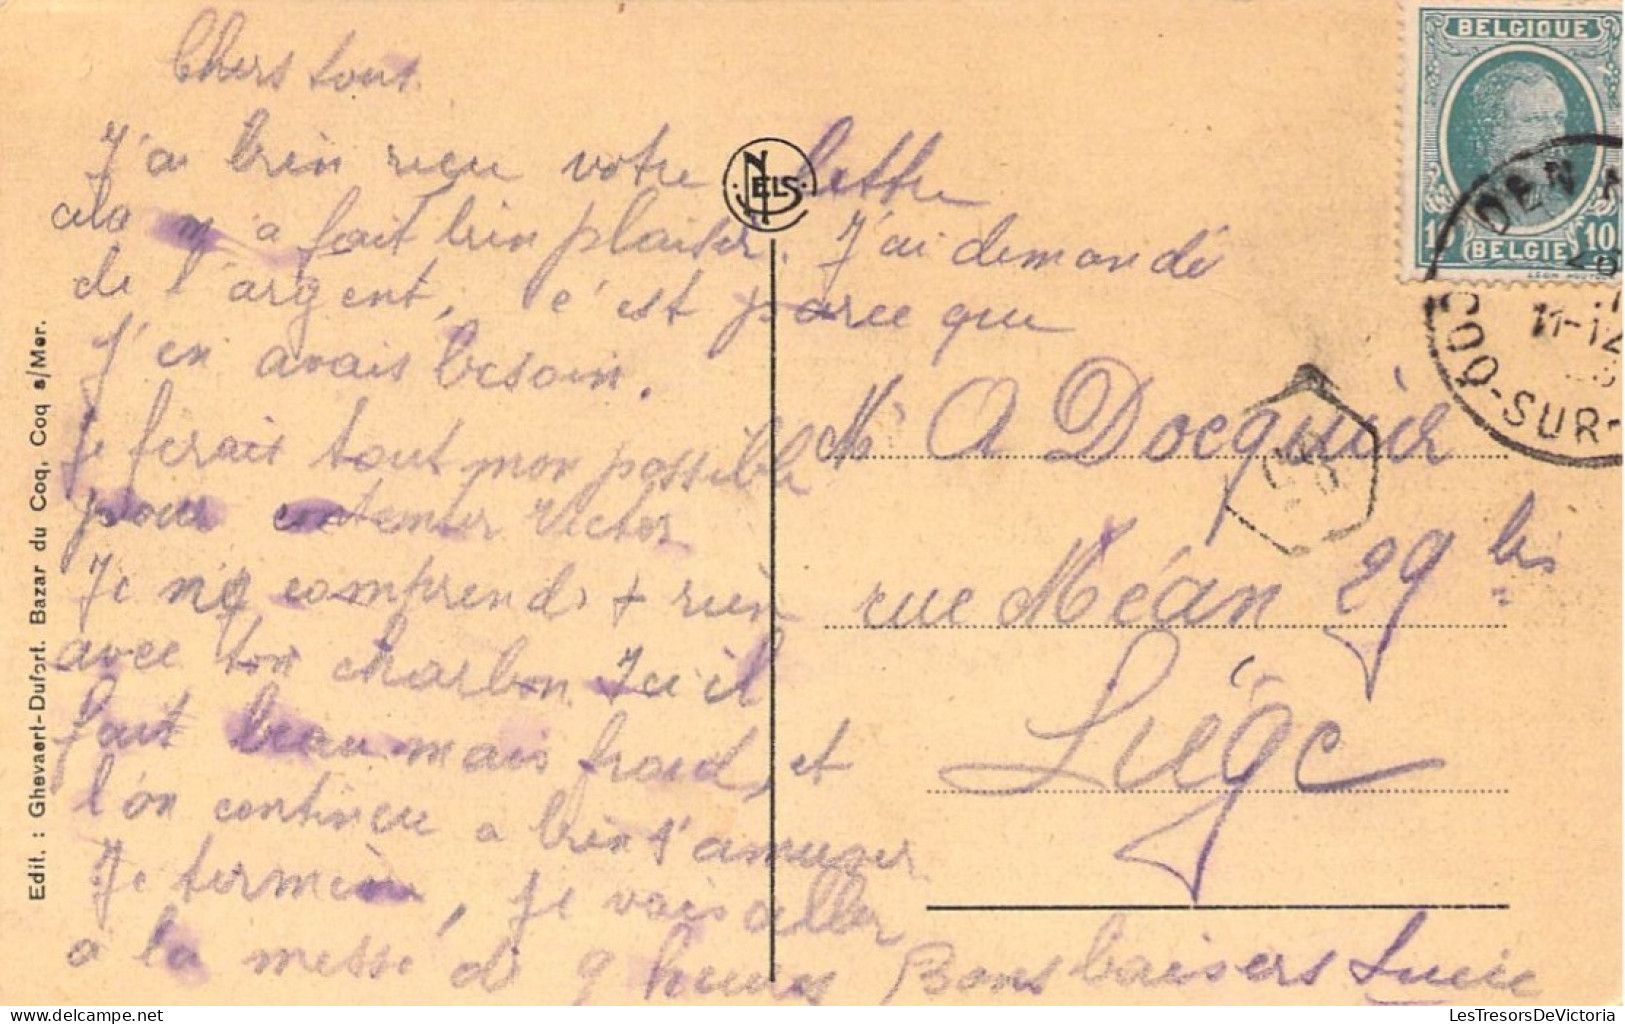 Chers tous
J'ai bien reçu votre lettre
cela m'a fait bien plaisir. J'ai demandé
de l'argent, c'est parce que
j'en avais besoin.
Je ferais tout mon possible
pour contenter Victor
Je ne comprends + rien
avec ton charbon. Ici il
fait beau mais froid, et
l'on continue a bien s'amuser
Je termine, je vais aller
a la messe de 9 heures Bons baisers Lucie
Mr A Docquier
rue Méan 29 bis
Liége
NELS
Edit. : Ghevaert-Dufort. Bazar du Coq, Coq s/Mer.
BELGIQUE
10 BELGIE 10
DEN
11-12
COQ-SUR-
LesTresorsDeVictoria